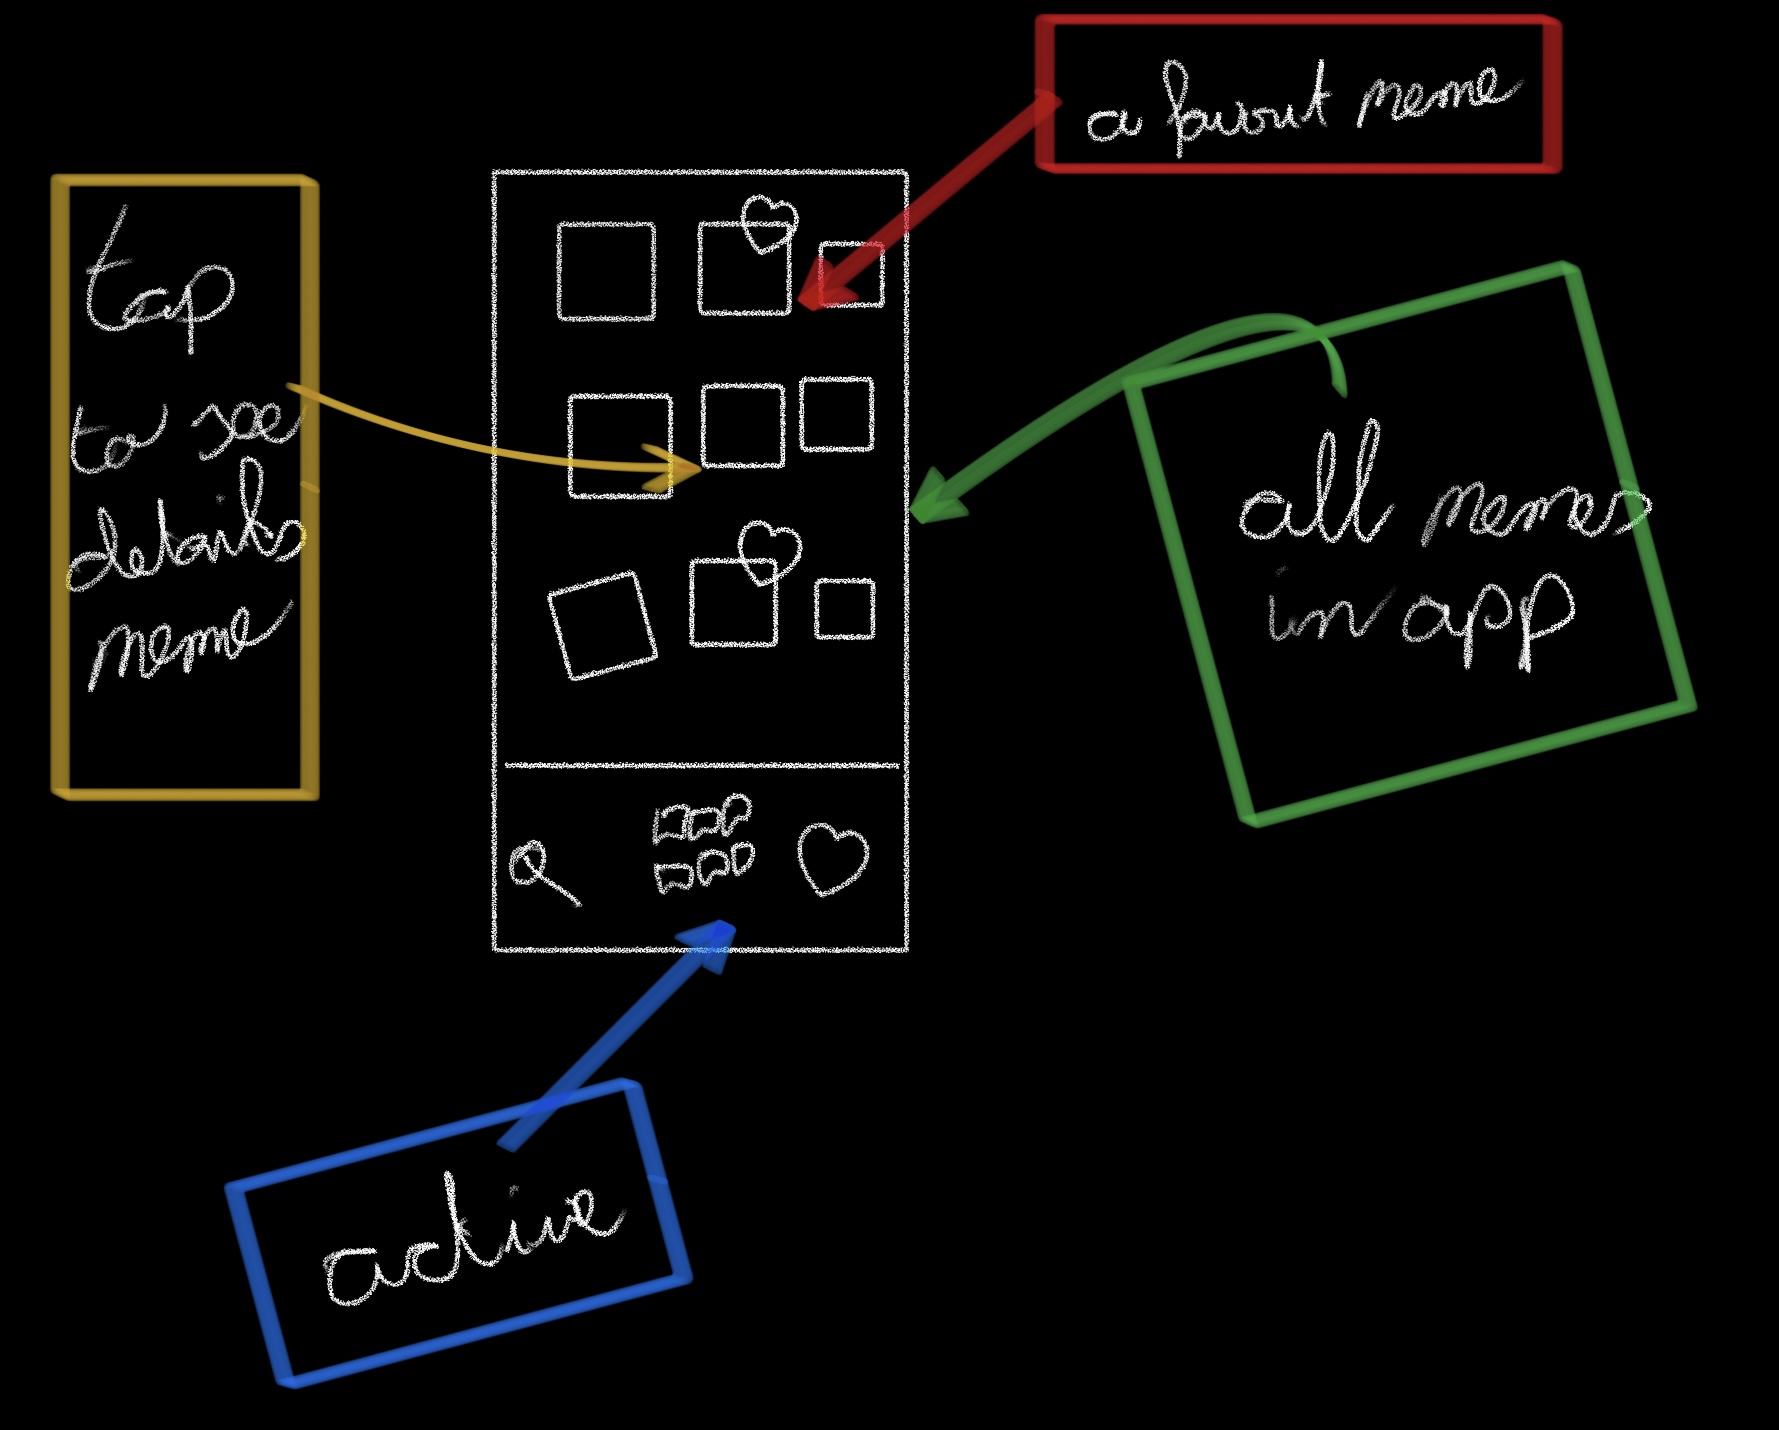 a favout meme
tap
to see
details
meme
all memes
in app
active